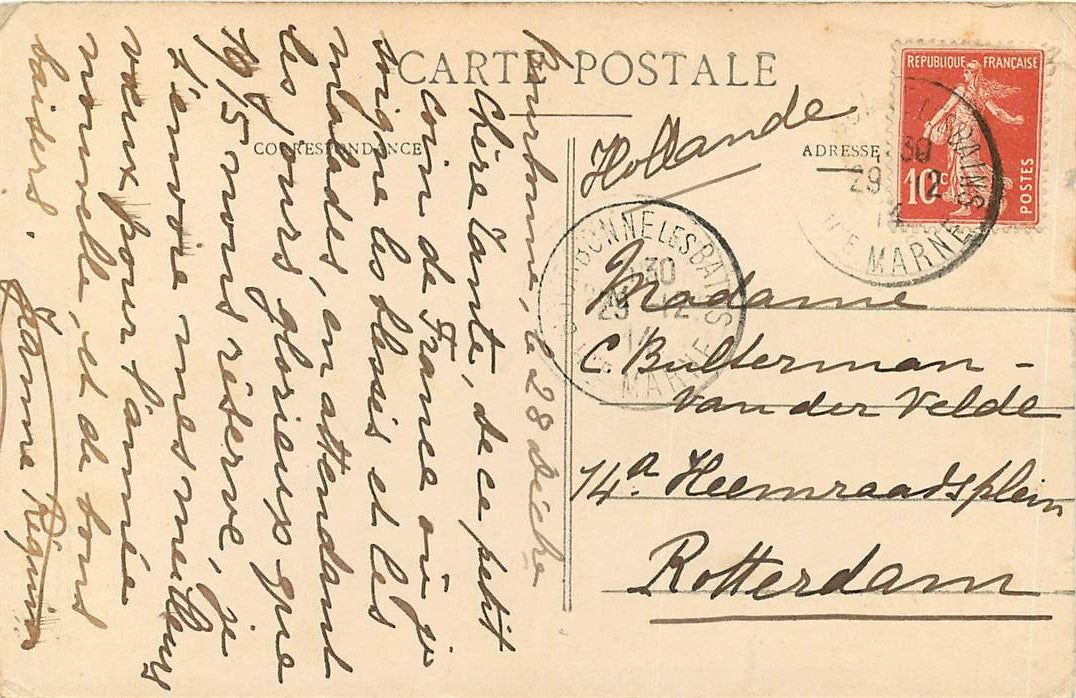 CARTE POSTALE
CORRESPONDANCE
ADRESSE
Bourbonne, le 28 Décbre
Chère Tante, de ce petit
coin de France où je
soigne les blessés et les
malades, en attendant
les jours glorieux que
1915 nous réserve, je
t'envoie mes meilleurs
vœux pour l'année
nouvelle, et de bons
baisers.
Jeanne
Hollande
Madame
C. Bulterman -
van der Velde
14a. Heemraadsplein
Rotterdam
REPUBLIQUE FRANÇAISE
10c
POSTES
BOURBONNE LES BAINS
30
29 12
14
HTE MARNE
LES BAINS
30
29 12
14
HTE MARNE